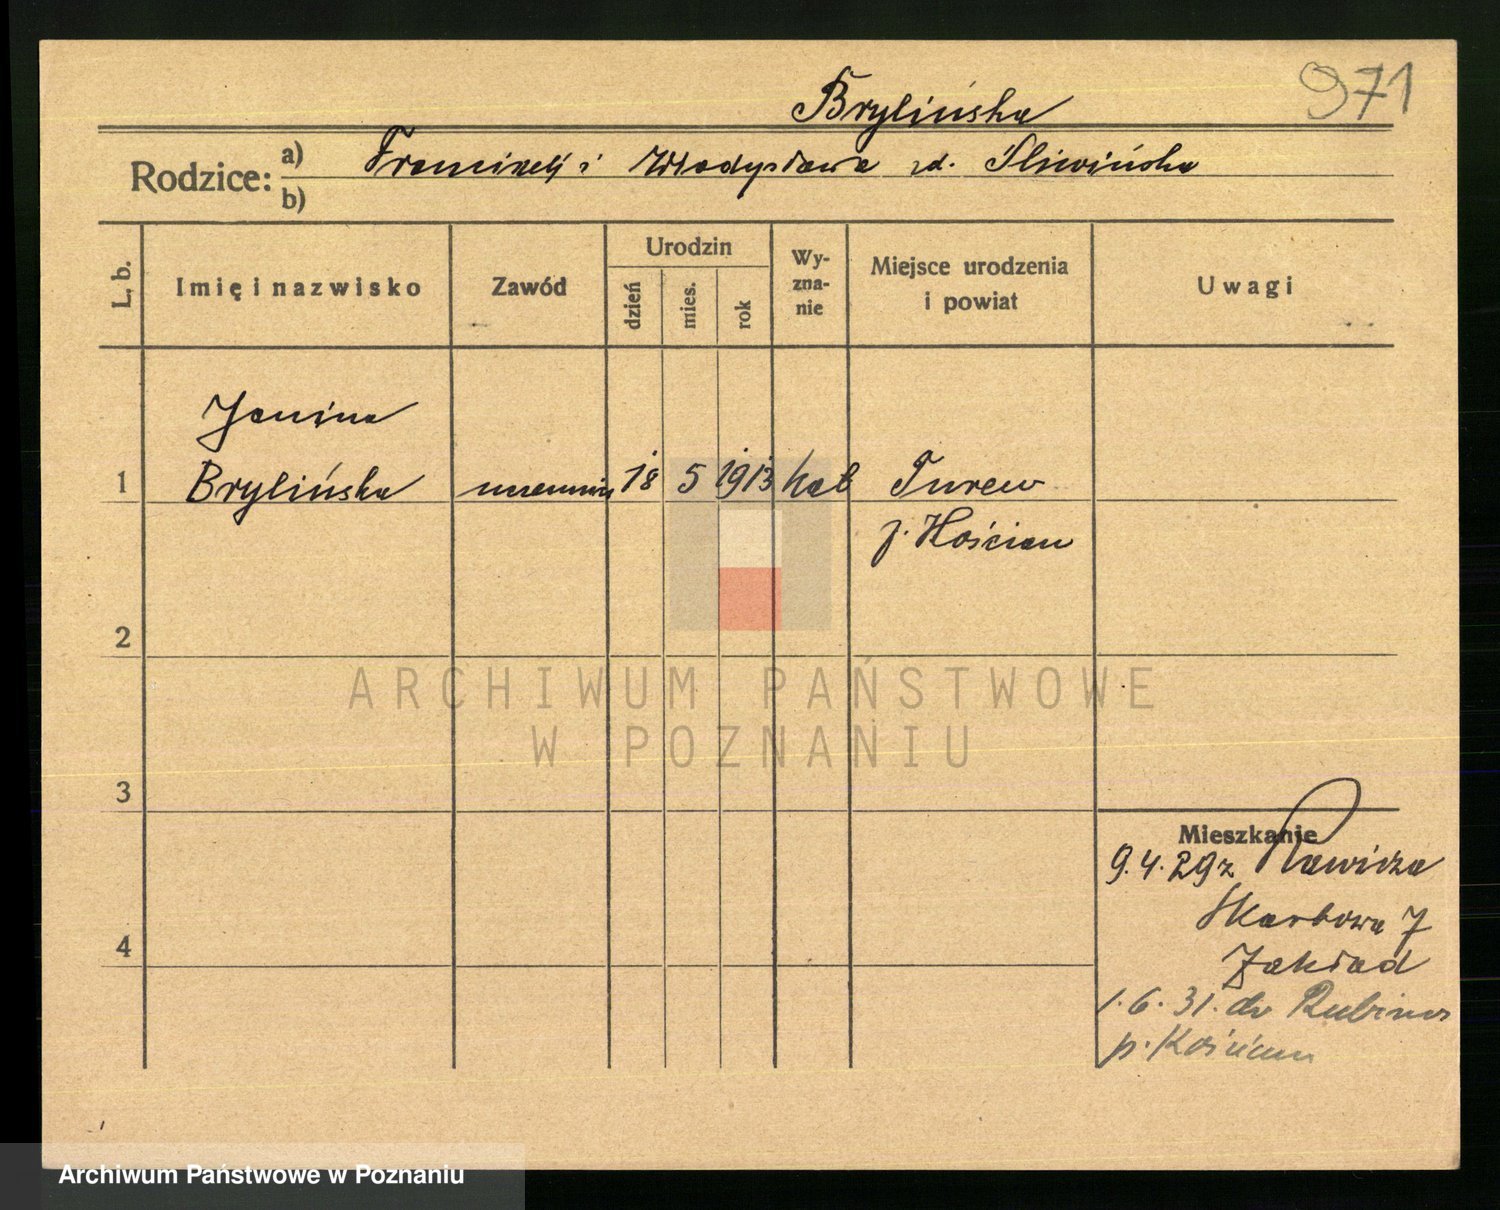 971
Brylińska
Rodzice: a) Franciszek i Władysława zd. Śliwińska
b)
L. b. Imię i nazwisko Zawód Urodzin dzień mies. rok Wyznanie Miejsce urodzenia i powiat Uwagi
Janina
1 Brylińska uczennica 18 5 1913 kat Turew
p. Kościan
2
ARCHIWUM PAŃSTWOWE
W POZNANIU
3
Mieszkanie
9.4.29 z Rawicza
Skarbowa 7
Zakład
4
1.6.31. do
p. Kościan
Archiwum Państwowe w Poznaniu